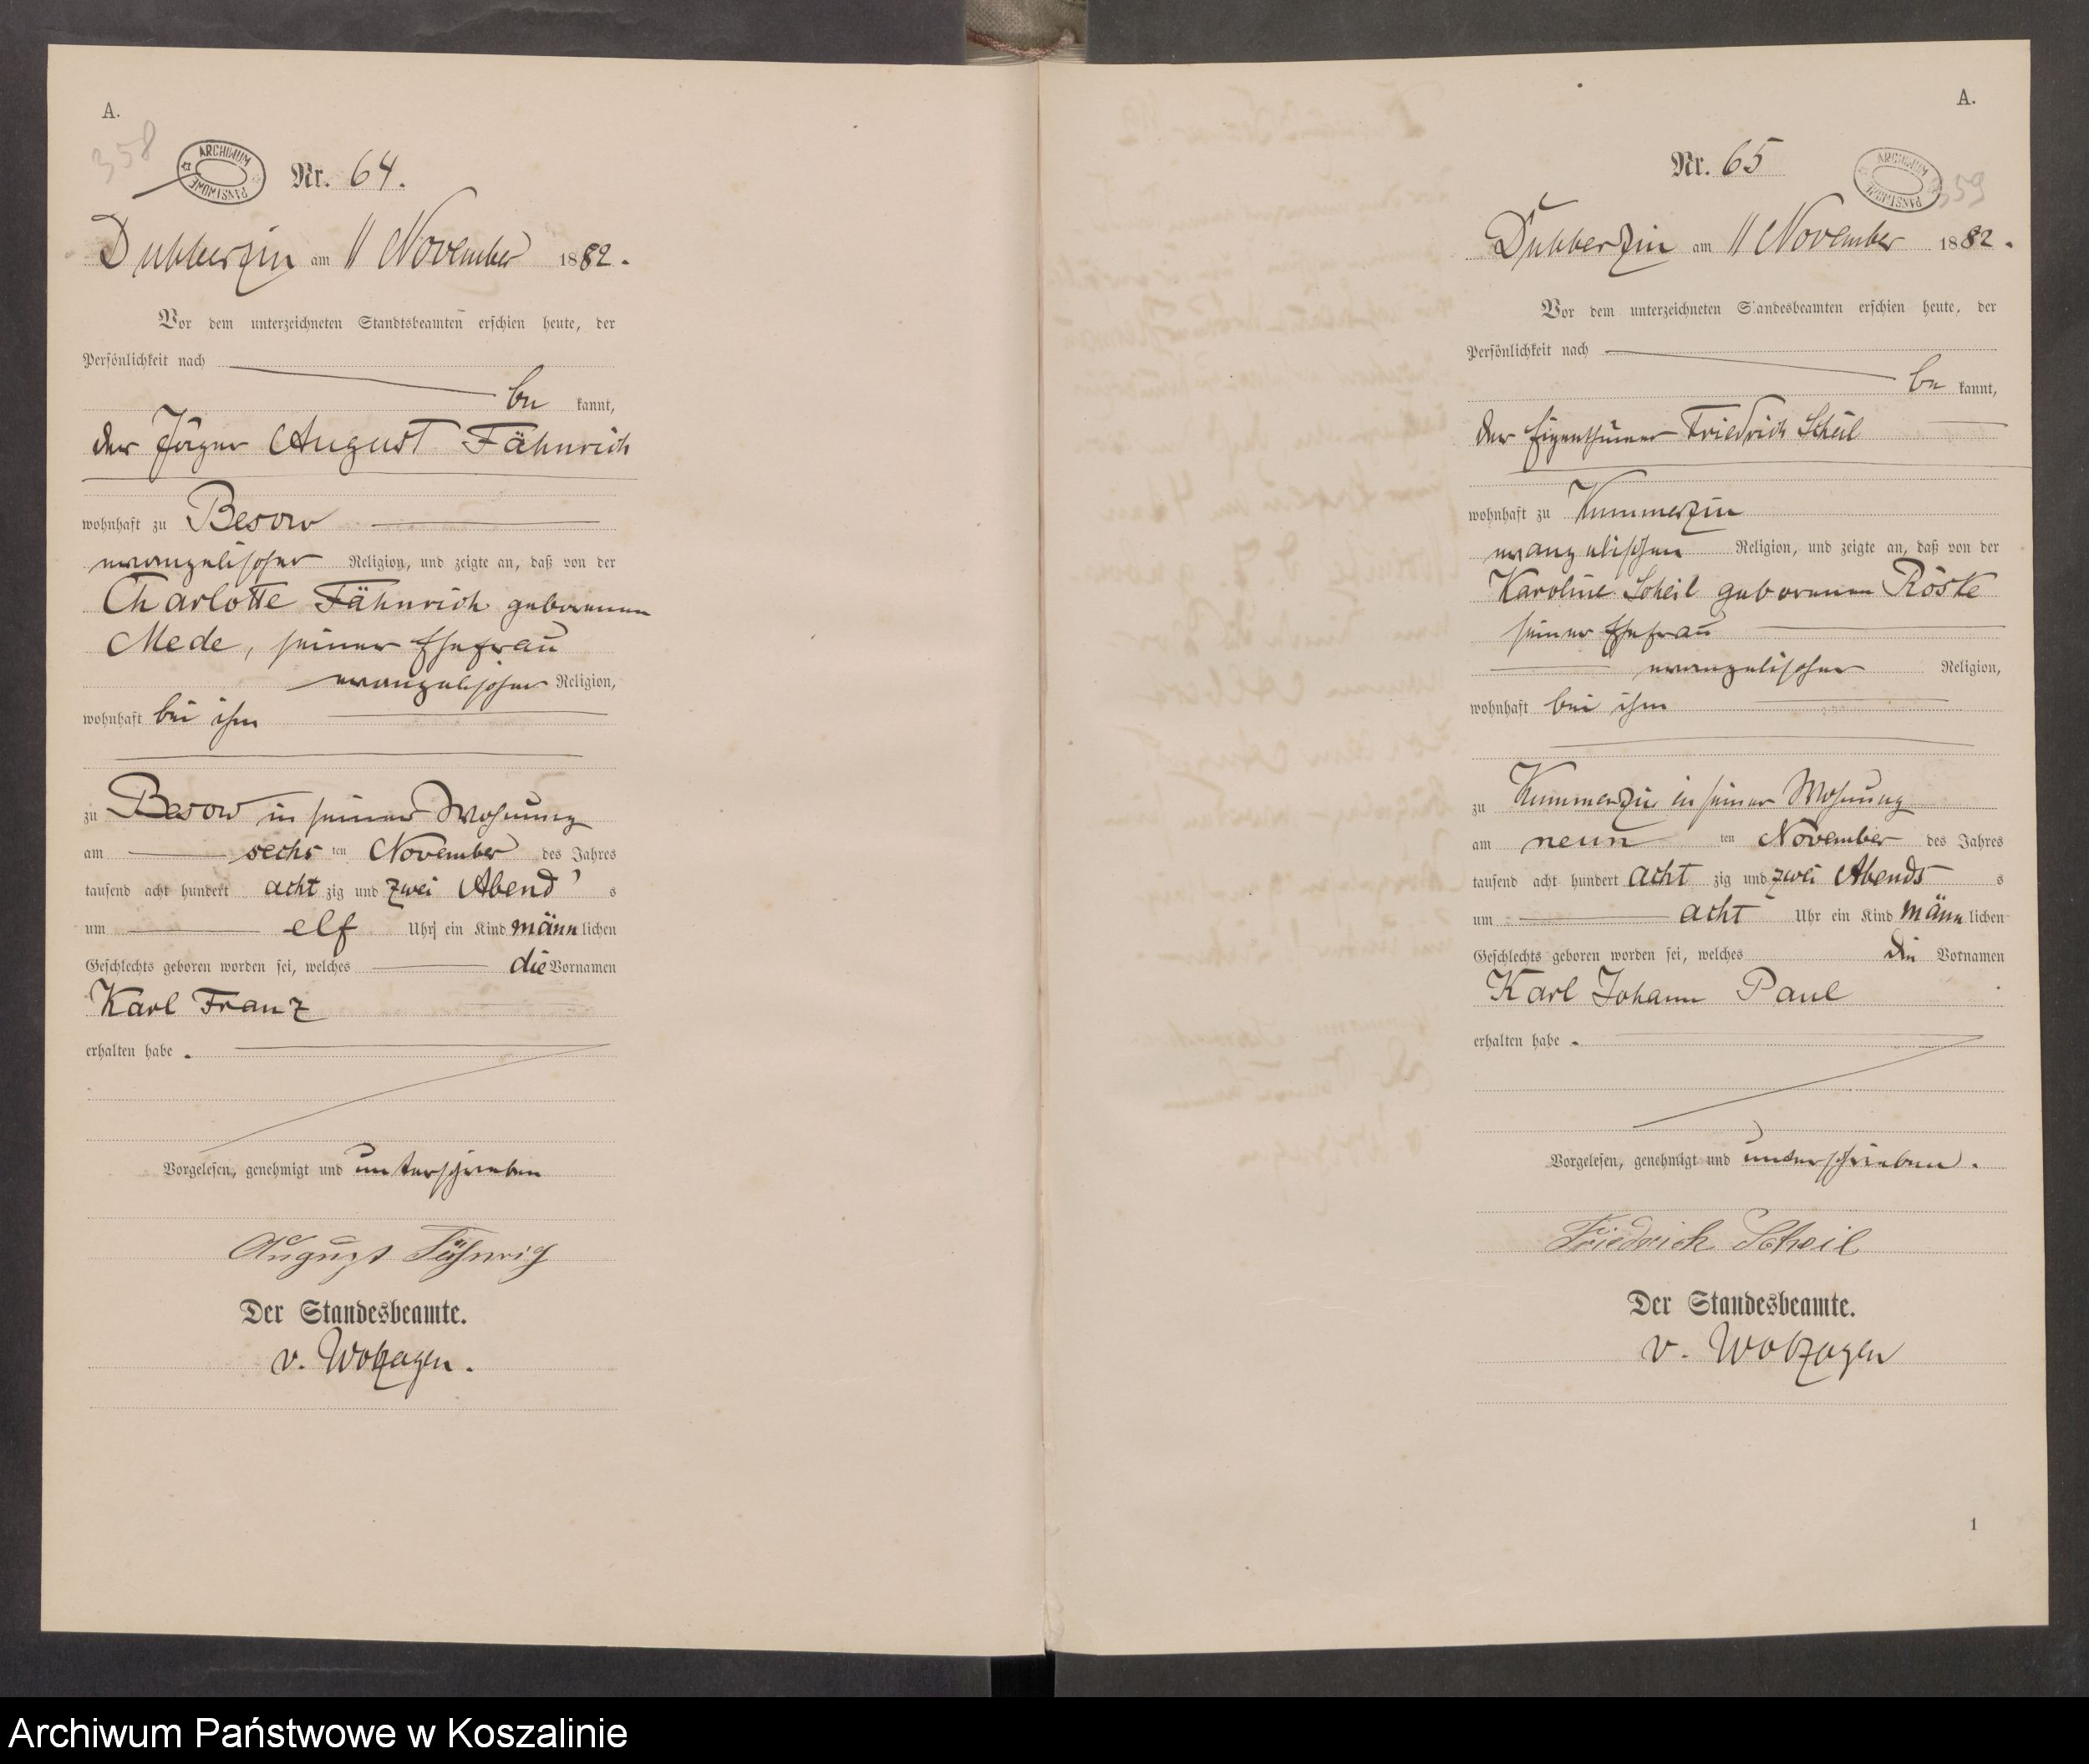 A.
358
ARCHIWUM PAŃSTWOWE
Nr. 64.
Dubberzin am 11 November 1882.
Vor dem unterzeichneten Standtsbeamten erschien heute, der
Persönlichkeit nach
be kannt,
der Jäger August Fähnrich
wohnhaft zu Besow
evangelischer Religion, und zeigte an, daß von der
Charlotte Fähnrich geborenen
Mede, seiner Ehefrau
evangelischer Religion,
wohnhaft bei ihm
zu Besow in seiner Wohnung
am sechs ten November des Jahres
tausend acht hundert acht zig und zwei Abend s
um elf Uhr ein Kind männ lichen
Geschlechts geboren worden sei, welches die Vornamen
Karl Franz
erhalten habe.
Vorgelesen, genehmigt und unterschrieben
August Fähnrich
Der Standesbeamte.
v. Wolzogen.
A.
359
ARCHIWUM PAŃSTWOWE
Nr. 65
Dubberzin am 11 November 1882.
Vor dem unterzeichneten Standesbeamten erschien heute, der
Persönlichkeit nach
be kannt,
der Eigenthümer Friedrich Scheil
wohnhaft zu Kummerzin
evangelischen Religion, und zeigte an, daß von der
Karoline Scheil geborenen Röske
seiner Ehefrau
evangelischer Religion,
wohnhaft bei ihm
zu Kummerzin in seiner Wohnung
am neun ten November des Jahres
tausend acht hundert acht zig und zwei Abends s
um acht Uhr ein Kind männ lichen
Geschlechts geboren worden sei, welches die Vornamen
Karl Johann Paul
erhalten habe.
Vorgelesen, genehmigt und unterschrieben.
Friedrich Scheil
Der Standesbeamte.
v. Wolzogen
1
Archiwum Państwowe w Koszalinie